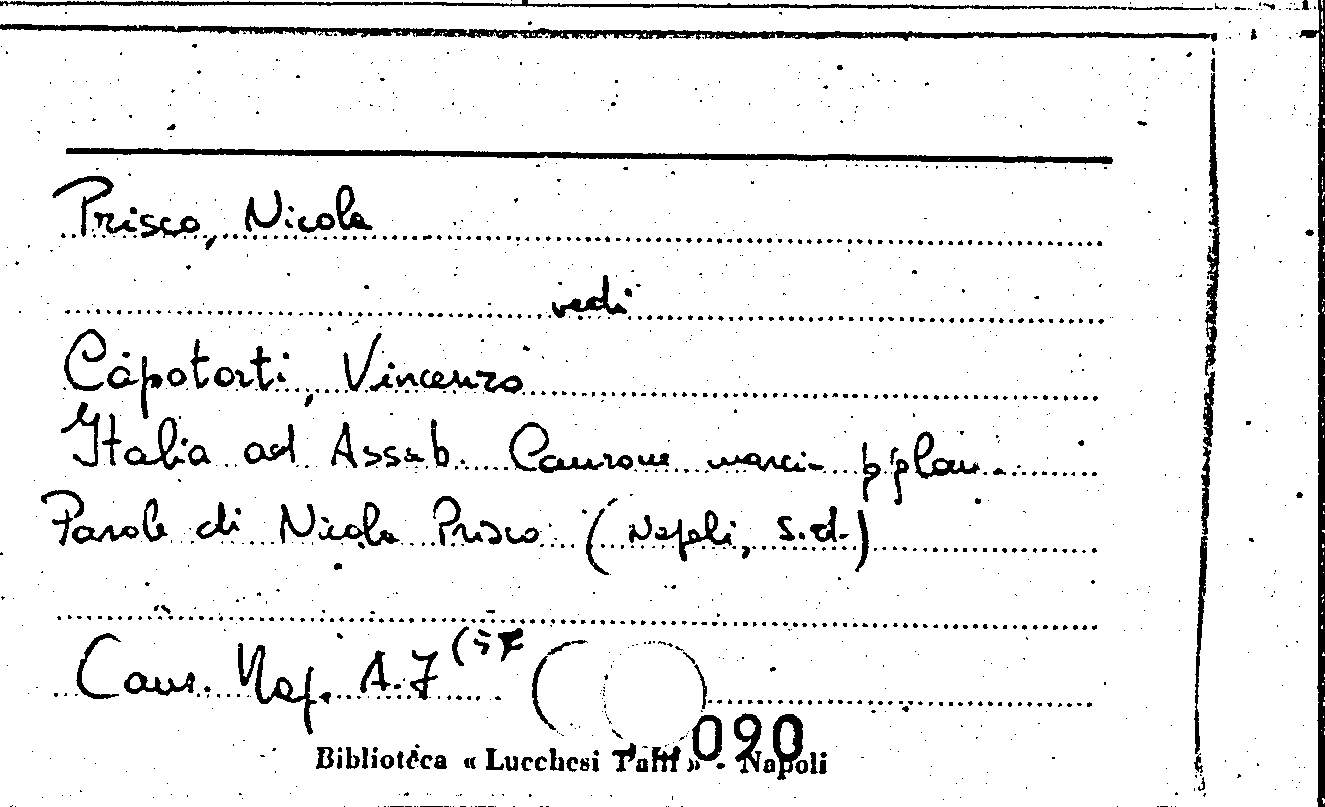 Prisco, Nicola
vedi
Capotorti, Vincenzo
Italia ad Assab. Canzone marcia p. pfan.
Parole di Nicola Prisco (Napoli, s.d.)
Canz. Nap. A.7 (57
090
Biblioteca « Lucchesi Palli » - Napoli